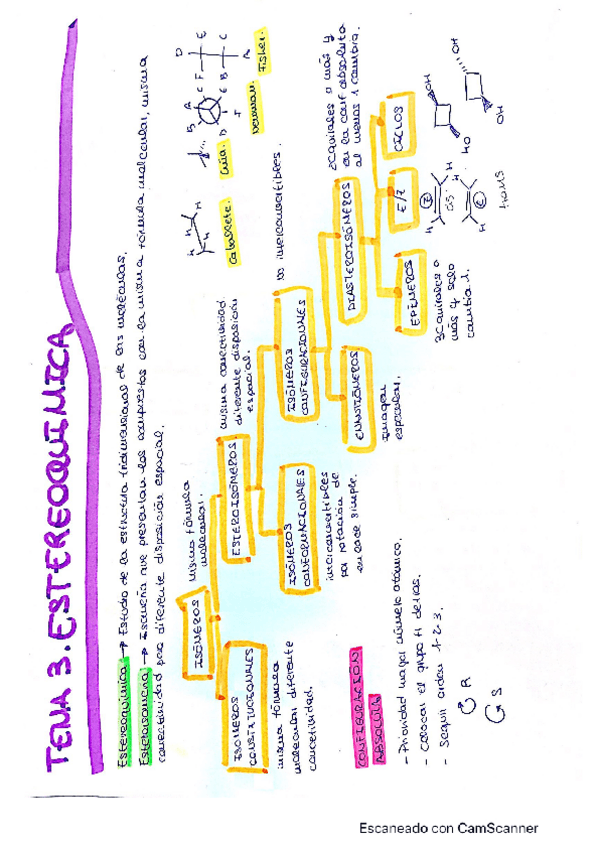 TEMA 3. ESTEREOQUIMICA
Estereoquímica → Estudio de la estructura tridimensional de las moléculas.
Estereoisomería → Isomería que presentan los compuestos con la misma fórmula molecular, misma
conectividad pero diferente disposición espacial.
ISÓMEROS
Misma fórmula
molecular.
ISÓMEROS
CONSTITUCIONALES
misma fórmula
molecular diferente
conectividad.
ESTEREOISÓMEROS
misma conectividad
diferente disposición
espacial.
ISÓMEROS
CONFORMACIONALES
interconvertibles
por rotación de
enlace simple.
ISÓMEROS
CONFIGURACIONALES
No interconvertibles.
ENANTIÓMEROS
Imagen
especular.
DIASTEROISÓMEROS
2 Cquirales o más y
en la conf absoluta
al menos 1 cambia.
EPÍMEROS
3 Cquirales o
más y solo
cambia 1.
E/Z
Z
CIS
E
trans
H
H
H
H
CICLOS
HO
OH
OH
OH
Caballete.
H
H
H
Cuña.
Newman.
A
B
C
D
E
F
Fisher.
A
B
C
D
E
F
CONFIGURACIÓN
ABSOLUTA
- Prioridad mayor número atómico.
- Colocar el grupo 4 detrás.
- Seguir orden 1-2-3.
R
S
Escaneado con CamScanner